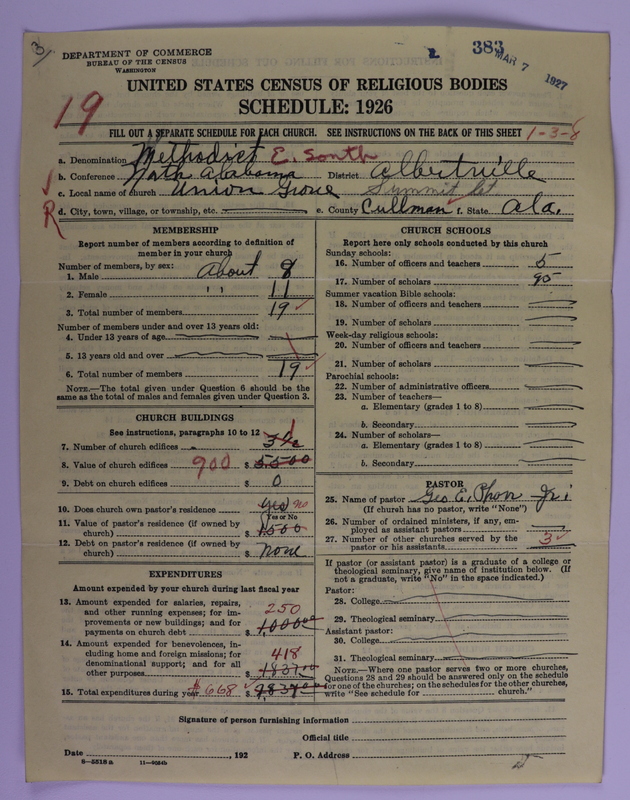 3/
DEPARTMENT OF COMMERCE
BUREAU OF THE CENSUS
WASHINGTON
383
MAR 7 1927
UNITED STATES CENSUS OF RELIGIOUS BODIES
SCHEDULE: 1926
19
FILL OUT A SEPARATE SCHEDULE FOR EACH CHURCH. SEE INSTRUCTIONS ON THE BACK OF THIS SHEET 1-3-8
a. Denomination Methodist E. South
b. Conference North Alabama District Albertville
c. Local name of church Union Grove Summit
R d. City, town, village, or township, etc. e. County Cullman f. State Ala.
MEMBERSHIP
Report number of members according to definition of member in your church
Number of members, by sex:
1. Male About 8
2. Female " 11
3. Total number of members 19
Number of members under and over 13 years old:
4. Under 13 years of age
5. 13 years old and over
6. Total number of members 19
NOTE.—The total given under Question 6 should be the
same as the total of males and females given under Question 3.
CHURCH BUILDINGS
See instructions, paragraphs 10 to 12
7. Number of church edifices
8. Value of church edifices 900 $ 5,500
9. Debt on church edifices $ 0
10. Does church own pastor's residence yes no
Yes or No
11. Value of pastor's residence (if owned by
church) $ 1500
12. Debt on pastor's residence (if owned by
church) $ none
EXPENDITURES
Amount expended by your church during last fiscal year
13. Amount expended for salaries, repairs,
and other running expenses; for im-
provements or new buildings; and for
payments on church debt $ 250
14. Amount expended for benevolences, in-
cluding home and foreign missions; for
denominational support; and for all
other purposes $ 418 1837.00
15. Total expenditures during year $668 $
CHURCH SCHOOLS
Report here only schools conducted by this church
Sunday schools:
16. Number of officers and teachers 5
17. Number of scholars 95
Summer vacation Bible schools:
18. Number of officers and teachers
19. Number of scholars
Week-day religious schools:
20. Number of officers and teachers
21. Number of scholars
Parochial schools:
22. Number of administrative officers
23. Number of teachers—
a. Elementary (grades 1 to 8)
b. Secondary
24. Number of scholars—
a. Elementary (grades 1 to 8)
b. Secondary
PASTOR
25. Name of pastor Geo. E.
(If church has no pastor, write "None")
26. Number of ordained ministers, if any, em-
ployed as assistant pastors
27. Number of other churches served by the
pastor or his assistants 3
If pastor (or assistant pastor) is a graduate of a college or
theological seminary, give name of institution below. (If
not a graduate, write "No" in the space indicated.)
Pastor:
28. College
29. Theological seminary
Assistant pastor:
30. College
31. Theological seminary
NOTE.—Where one pastor serves two or more churches,
Questions 28 and 29 should be answered only on the schedule
for one of the churches; on the schedules for the other churches,
write "See schedule for church."
Signature of person furnishing information
Official title
Date , 192 P. O. Address
8—5518 a 11—9054b